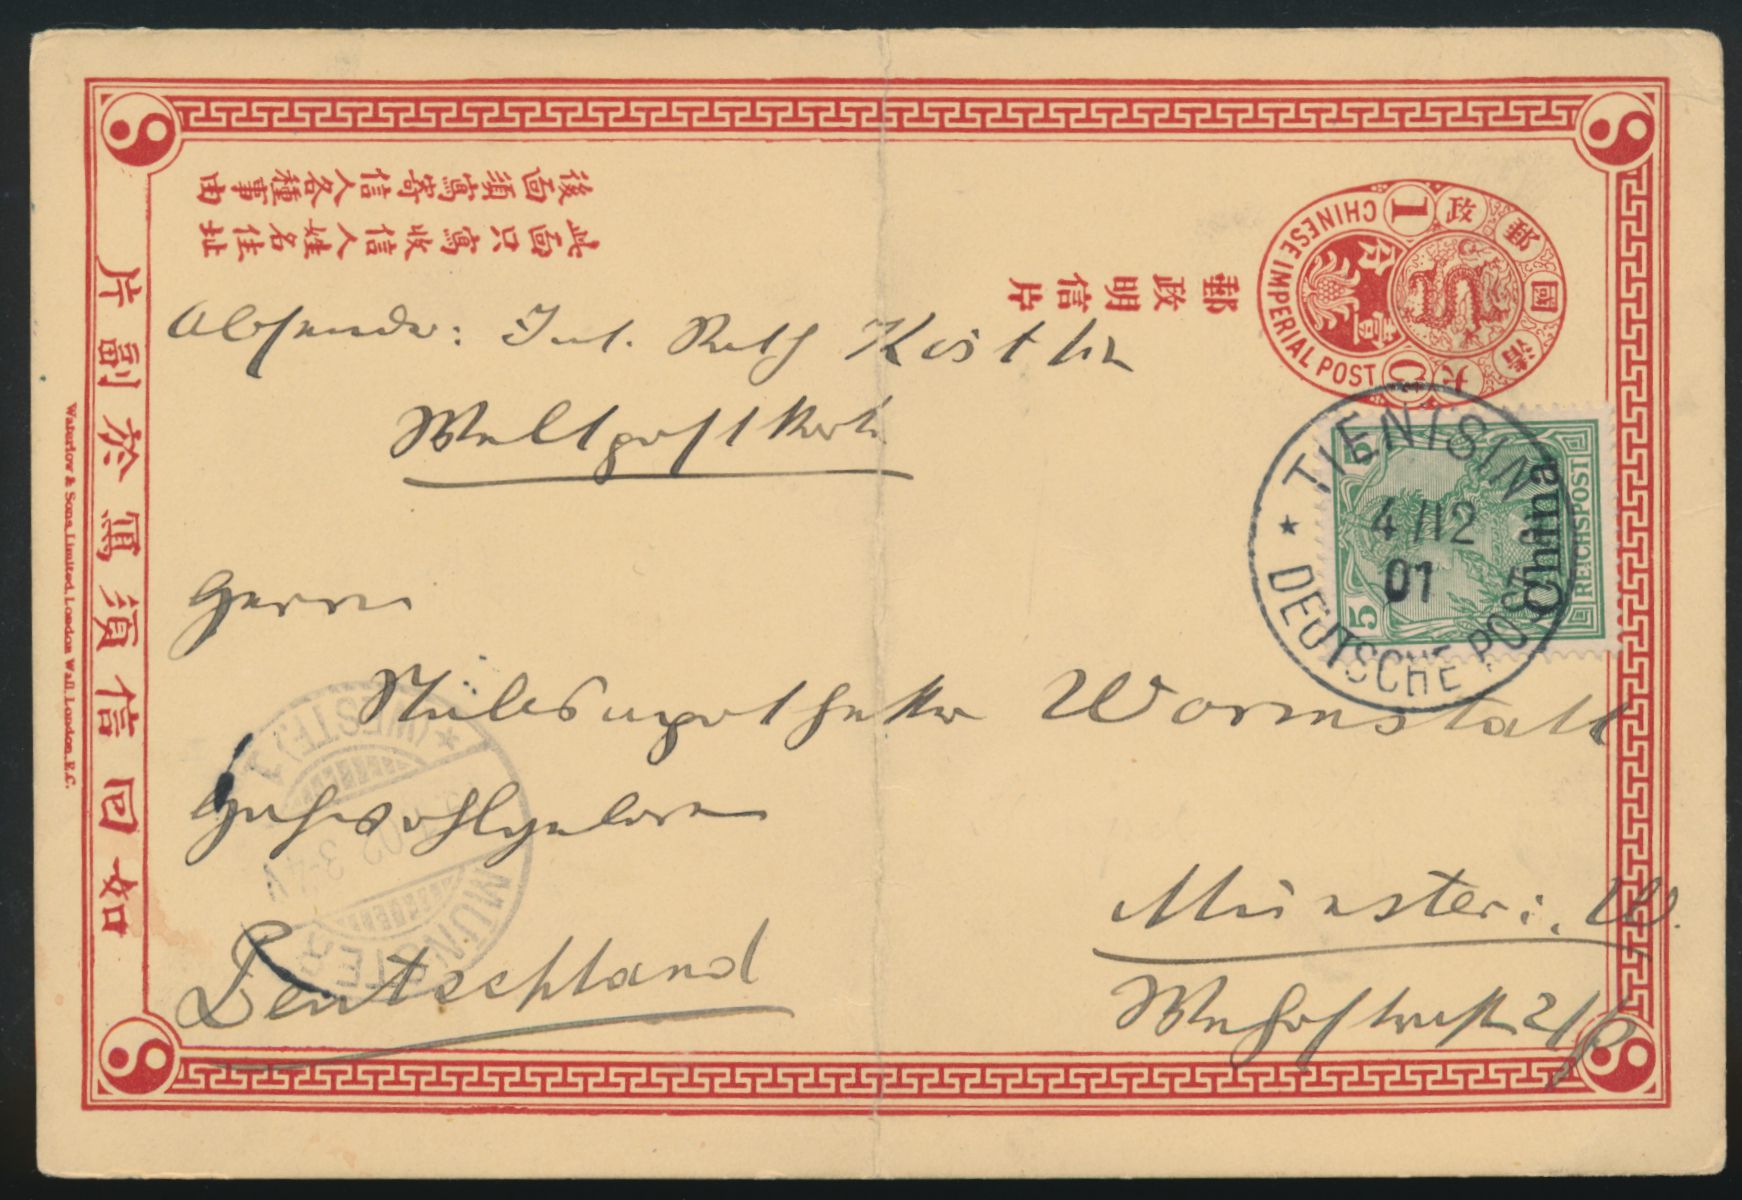 後面須寫寄信人各種事由
此面只寫收信人姓名住址
郵政明信片
CHINESE IMPERIAL POST
大清國郵政
1
壹分
C
如回信須寫於副片
Waterlow & Sons, Limited, London Wall, London, E.C.
5
5
REICHSPOST
China
TIENTSIN
4/12
01
DEUTSCHE POST
Absender: Int. Rath Köstlin
Weltpostkarte
Herrn
Wormstall
Hochwohlgeboren
Münster i. W.
Deutschland
MÜNSTER
(WESTF.) 1
02. 3-4 N